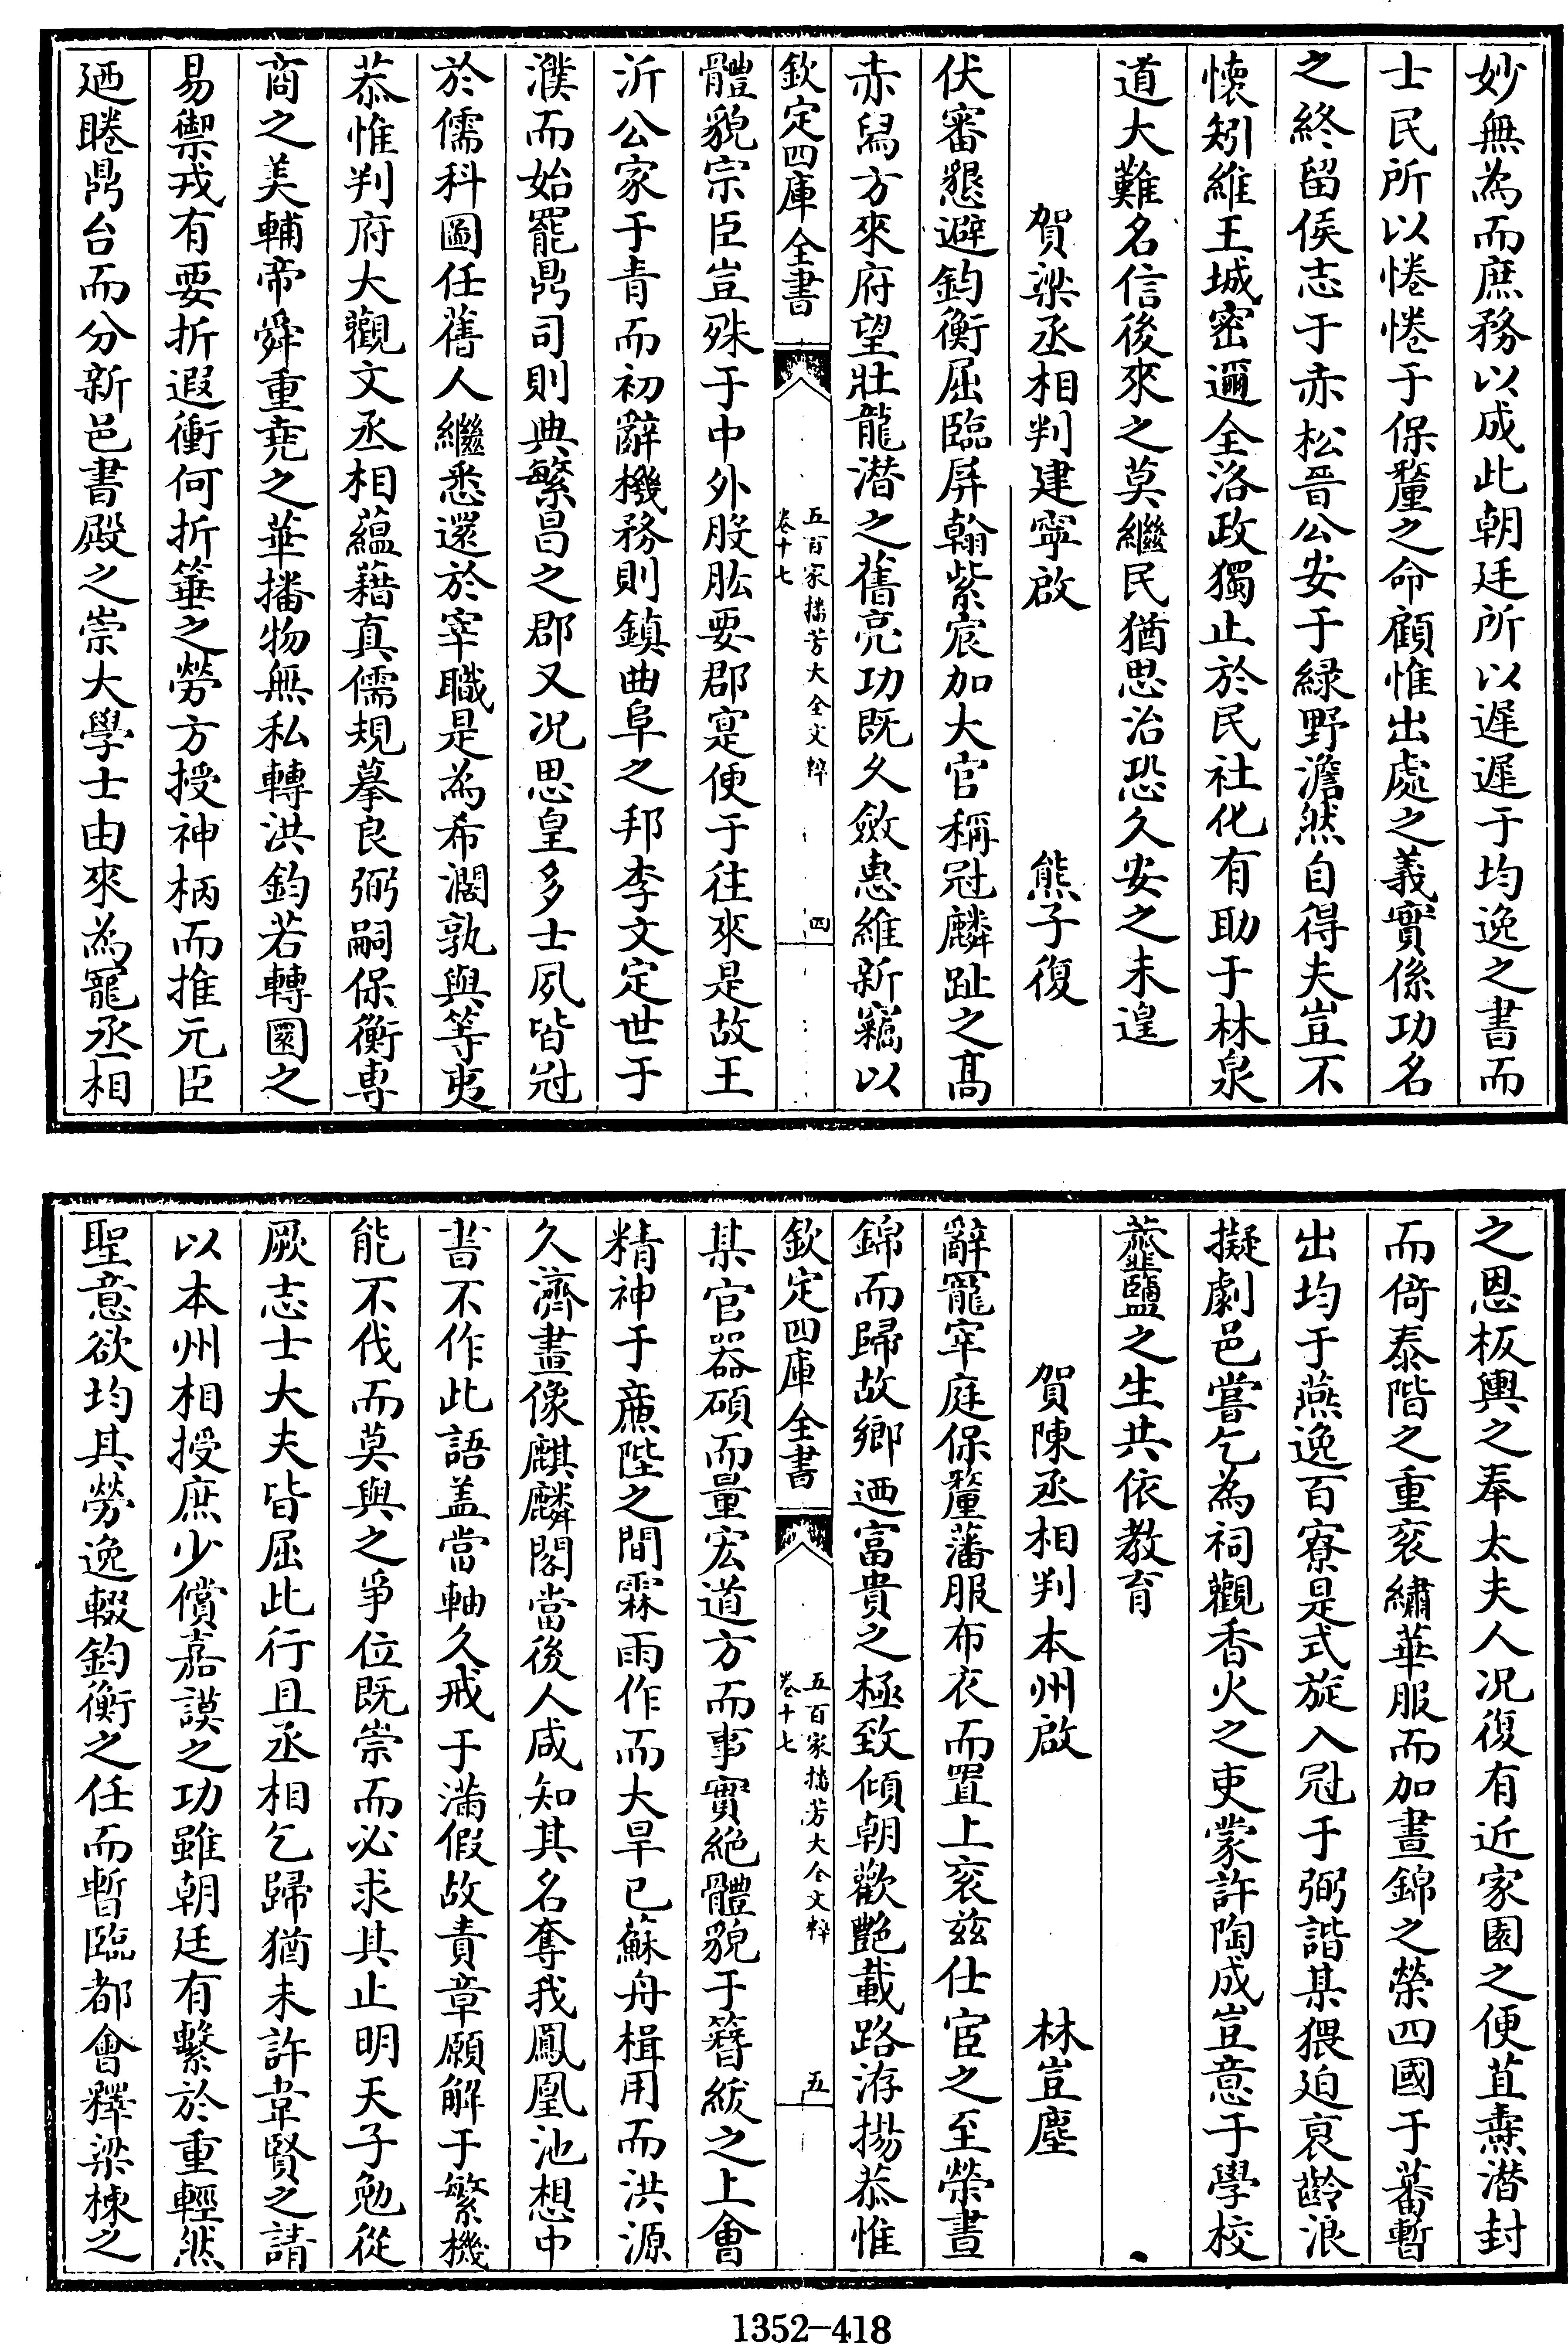 妙無為而庶務以成此朝廷所以遲遲于均逸之書而
士民所以惓惓于保釐之命顧惟出處之義實係功名
之終留侯志于赤松晉公安于緑野澹然自得夫豈不
懷矧維王城密邇全洛政獨止於民社化有助于林泉
道大難名信後來之莫繼民猶思治恐久安之未遑
賀梁丞相判建寧啟　熊子復
伏審懇避鈞衡屈臨屏翰紫宸加大官稱冠麟趾之髙
赤舄方來府望壯龍潛之舊亮功既久斂惠維新竊以
欽定四庫全書
五百家播芳大全文粹
卷十七
四
體貌宗臣豈殊于中外股肱要郡寔便于往來是故王
沂公家于青而初辭機務則鎮曲阜之邦李文定世于
濮而始罷鼎司則典繁昌之郡又况思皇多士夙皆冠
於儒科圖任舊人繼悉還於宰職是為希濶孰與等夷
恭惟判府大觀文丞相蘊藉真儒規摹良弼嗣保衡専
商之美輔帝舜重堯之華播物無私轉洪鈞若轉圜之
易禦戎有要折遐衝何折箠之勞方授神柄而推元臣
廼睠鼎台而分新邑書殿之崇大學士由來為寵丞相
之恩板輿之奉太夫人况復有近家園之便苴燾潛封
而倚泰階之重衮繡華服而加晝錦之榮四國于蕃暫
出均于燕逸百寮是式旋入冠于弼諧某猥迫衰齡浪
擬劇邑嘗乞為祠觀香火之吏蒙許陶成豈意于學校
虀鹽之生共依教育
賀陳丞相判本州啟　林豈塵
辭寵宰庭保釐藩服布衣而置上衮兹仕宦之至榮晝
錦而歸故鄉廼富貴之極致傾朝歡艷載路洊揚恭惟
欽定四庫全書
五百家播芳大全文粹
卷十七
五
某官器碩而量宏道方而事實絶體貌于簪紱之上會
精神于廉陛之間霖雨作而大旱已蘇舟楫用而洪源
久濟畫像麒麟閣當後人咸知其名奪我鳳凰池想中
書不作此語盖當軸久戒于滿假故責章願解于繁機
能不伐而莫與之爭位既崇而必求其止明天子勉從
厥志士大夫皆屈此行且丞相乞歸猶未許韋賢之請
以本州相授庶少償嘉謨之功雖朝廷有繫於重輕然
聖意欲均其勞逸輟鈞衡之任而暫臨都會釋梁棟之
1352-418